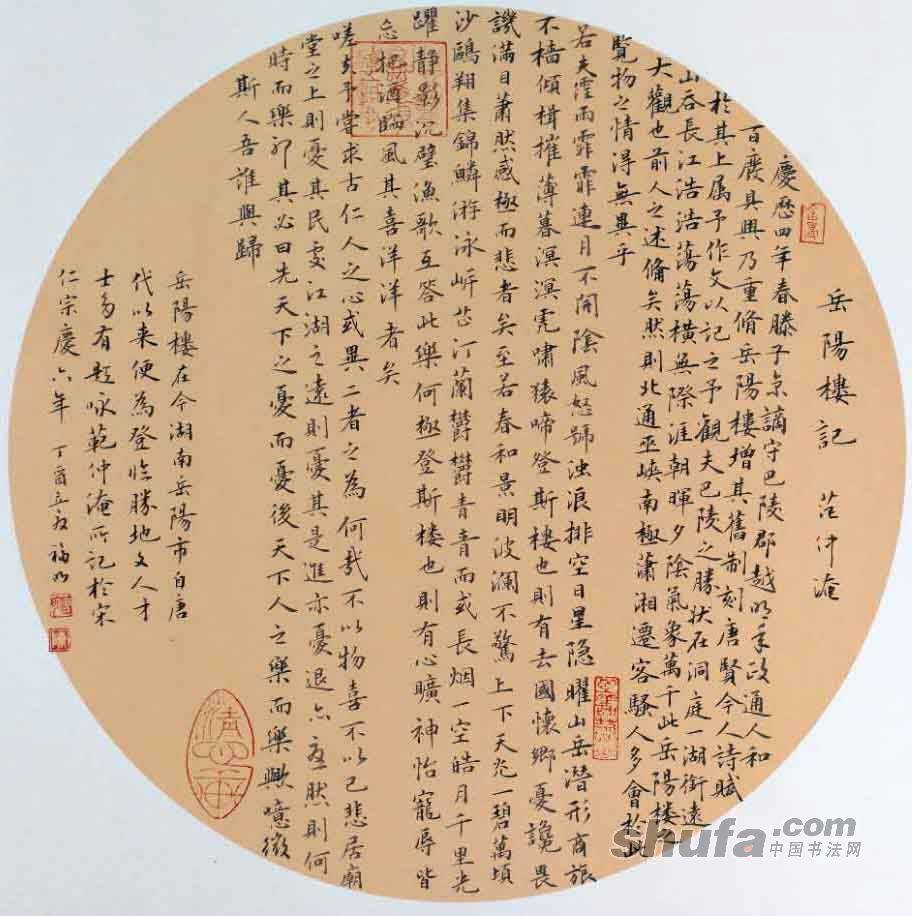 岳陽樓記 范仲淹
慶歷四年春滕子京謫守巴陵郡越明年政通人和
百廢具興乃重脩岳陽樓增其舊制刻唐賢今人詩賦
於其上属予作文以記之予觀夫巴陵之勝状在洞庭一湖銜遠
山吞長江浩浩蕩蕩橫無際涯朝暉夕陰氣象萬千此岳陽樓之
大觀也前人之述俻矣然則北通巫峽南極瀟湘遷客騷人多會於此
覽物之情得無異乎
若夫霪雨霏霏連月不開陰風怒號浊浪排空日星隐曜山岳潛形商旅
不檣傾楫摧薄暮溟溟虎嘯猿啼登斯樓也則有去國懷鄉憂讒畏
譏滿目蕭然感極而悲者矣至若春和景明波瀾不驚上下天光一碧萬頃
沙鷗翔集錦鱗游泳岸芷汀蘭欝欝青青而或長烟一空皓月千里光
躍靜影沉璧漁歌互答此樂何極登斯楼也則有心曠神怡寵辱皆
忘把酒臨風其喜洋洋者矣
嗟夫予嘗求古仁人之心或異二者之為何哉不以物喜不以己悲居廟
堂之上則憂其民處江湖之遠則憂其是進亦憂退亦憂然則何
時而樂耶其必曰先天下之憂而憂後天下人之樂而樂歟噫微
斯人吾誰與歸
岳陽樓在今湖南岳陽市自唐
代以来便為登临勝地文人才
士多有題咏範仲淹所記於宋
仁宗慶六年 丁酉立秋
shufa.com
中国书法网